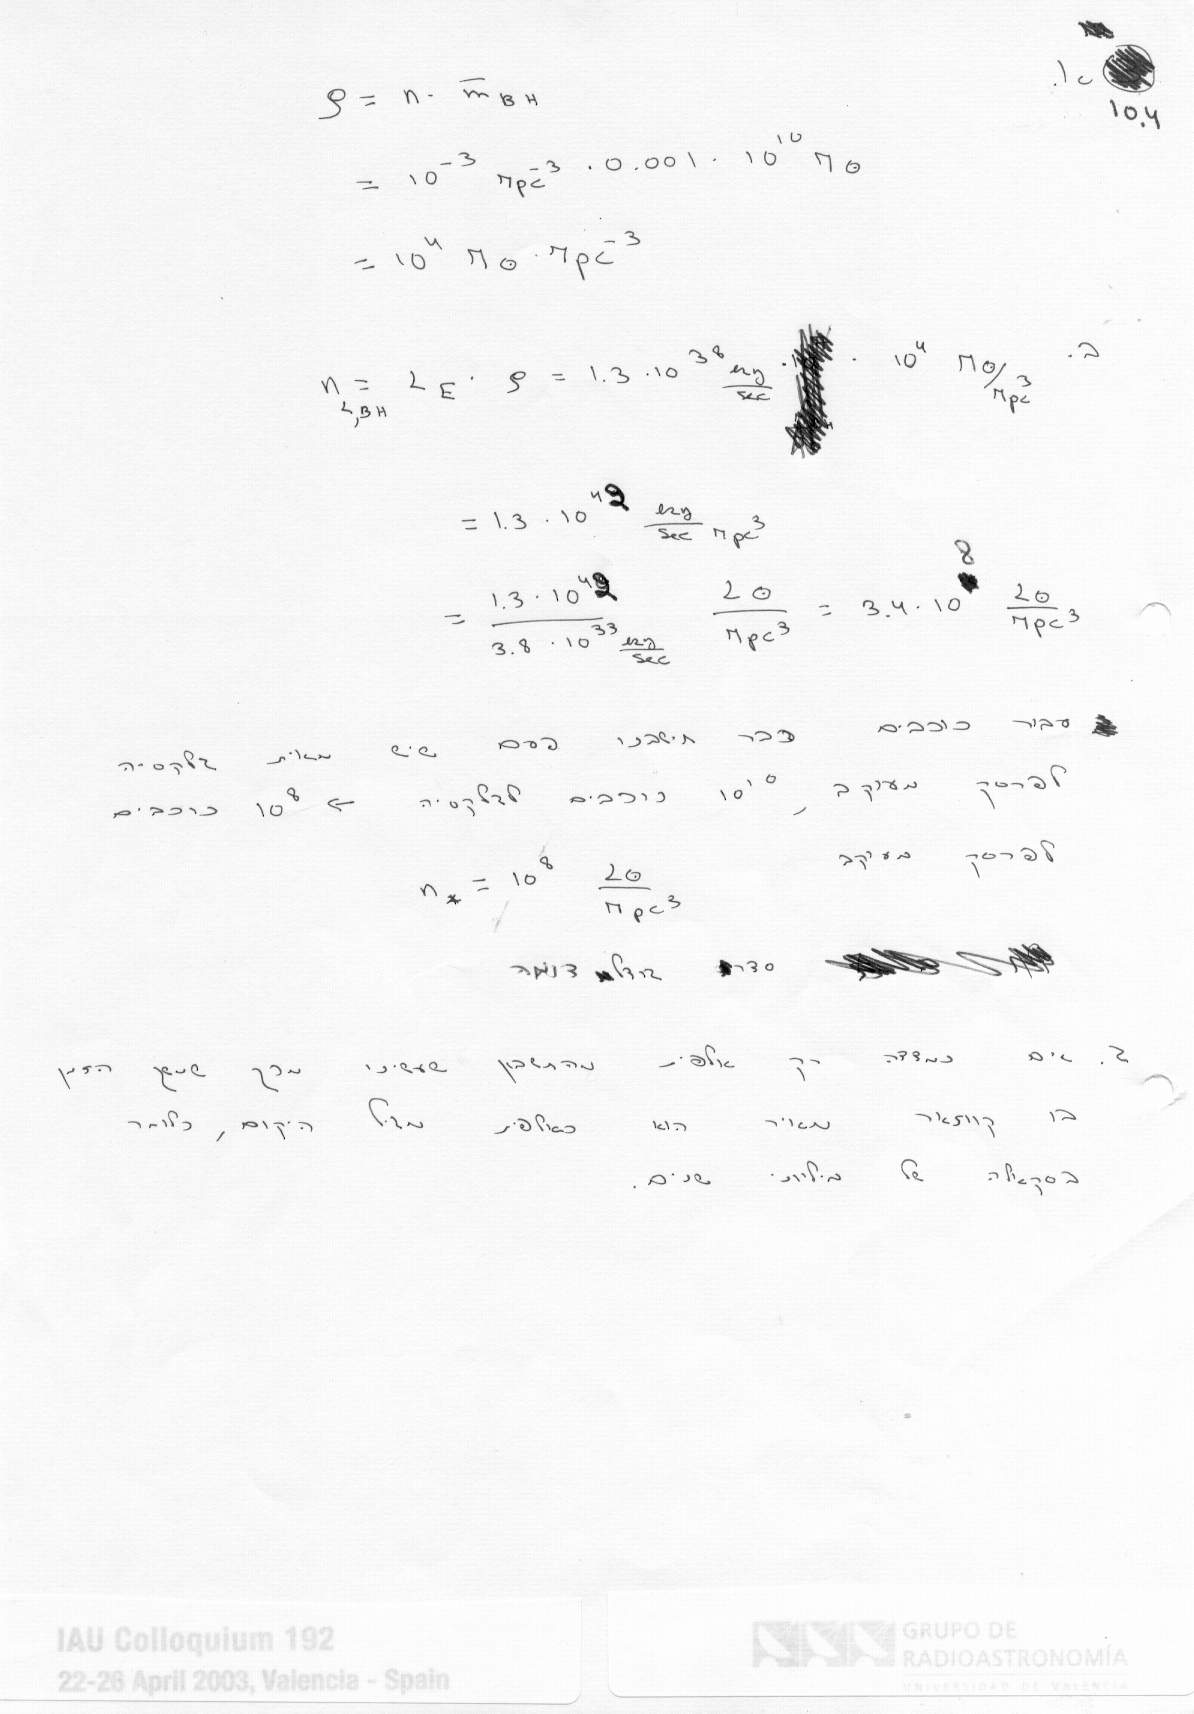 10.4
א.
ρ = n · m̄_BH
= 10⁻³ Mpc⁻³ · 0.001 · 10¹⁰ M⊙
= 10⁴ M⊙ · Mpc⁻³
ב. n_L,BH = L_E · ρ = 1.3 · 10³⁸ erg/sec · 10⁴ M⊙/Mpc³
= 1.3 · 10⁴² erg/sec Mpc³
= 1.3 · 10⁴² / 3.8 · 10³³ erg/sec L⊙/Mpc³ = 3.4 · 10⁸ L⊙/Mpc³
עבור כוכבים כבר חישבנו פעם שיש מאית גלקסיה
לפרסק מעוקב, 10¹⁰ כוכבים לגלקסיה ← 10⁸ כוכבים
לפרסק מעוקב
n_* = 10⁸ L⊙/Mpc³
סדר גודל דומה
ג. אים נמדדה רק אלפית מהחשבון שעשינו מכך שמשך הזמן
בו קוואזאר מאיר הוא כאלפית מגיל היקום, כלומר
בסקאלה של מיליוני שנים.
IAU Colloquium 192
22-26 April 2003, Valencia - Spain
GRUPO DE
RADIOASTRONOMÍA
UNIVERSIDAD DE VALENCIA